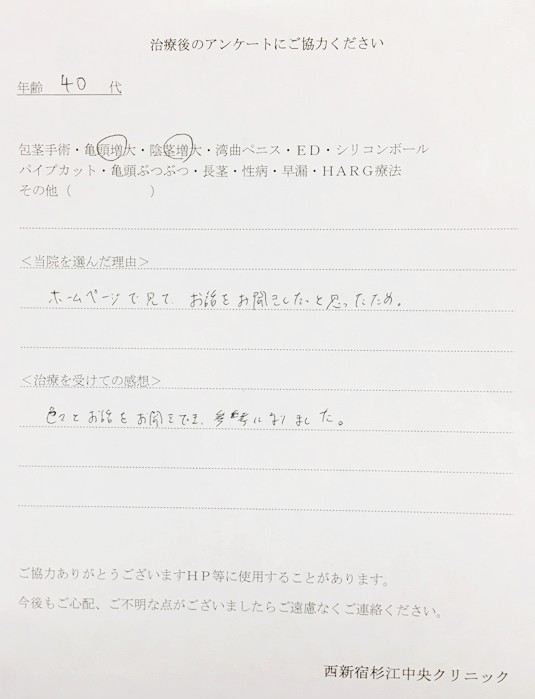 治療後のアンケートにご協力ください
年齢 40 代
包茎手術・亀頭増大・陰茎増大・湾曲ペニス・ED・シリコンボール
パイプカット・亀頭ぶつぶつ・長茎・性病・早漏・HARG療法
その他( )
<当院を選んだ理由>
ホームページで見て、お話をお聞きしたいと思ったため。
<治療を受けての感想>
色々とお話をお聞きでき、参考になりました。
ご協力ありがとうございますHP等に使用することがあります。
今後もご心配、ご不明な点がございましたらご遠慮なくご連絡ください。
西新宿杉江中央クリニック